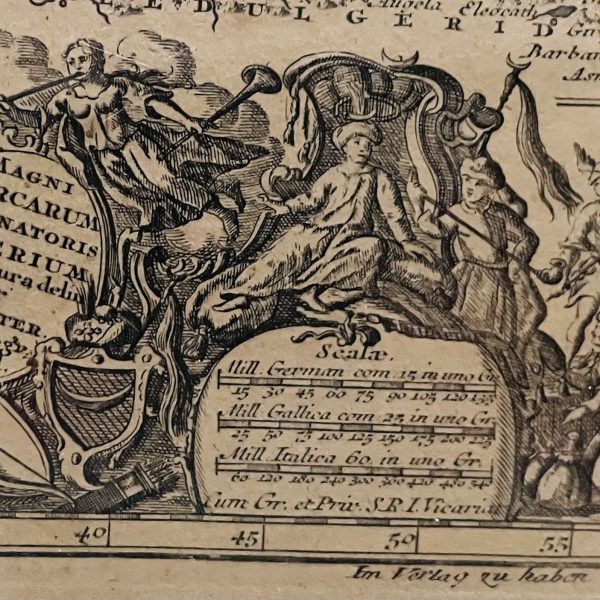 EDULGERID
Angela Eleocath
Barba
As
MAGNI
RCARUM
NATORIS
ERIUM
ura deli
TER
Scalæ.
Mill. German com. 15 in uno G
15 30 45 60 75 90 105 120 135
Mill. Gallica com 25 in uno Gr
25 50 75 100 125 150 175 200 225
Mill. Italica 60. in uno Gr.
60 120 180 240 300 360 420 480
Cum Gr. et Priv. S.R.I. Vicaria
40 45 50 55
Im Verlag zu haben